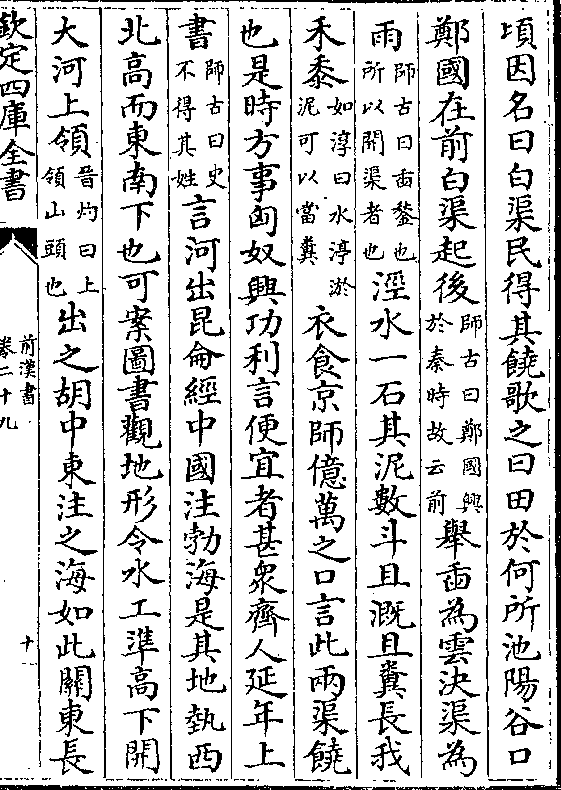 頃因名曰白渠民得其饒歌之曰田於何所池陽谷口
鄭國在前白渠起後師古曰鄭國興於秦時故云前舉臿為雲決渠為
雨師古曰臿鍫也所以開渠者也涇水一石其泥數斗且溉且糞長我
禾黍如淳曰水渟淤泥可以當糞衣食京師億萬之口言此兩渠饒
也是時方事匈奴興功利言便宜者甚衆齊人延年上
書師古曰史不得其姓言河出昆侖經中國注勃海是其地埶西
北高而東南下也可案圖書觀地形令水工準高下開
大河上領晉灼曰上領山頭也出之胡中東注之海如此關東長
欽定四庫全書
前漢書
卷二十九
十